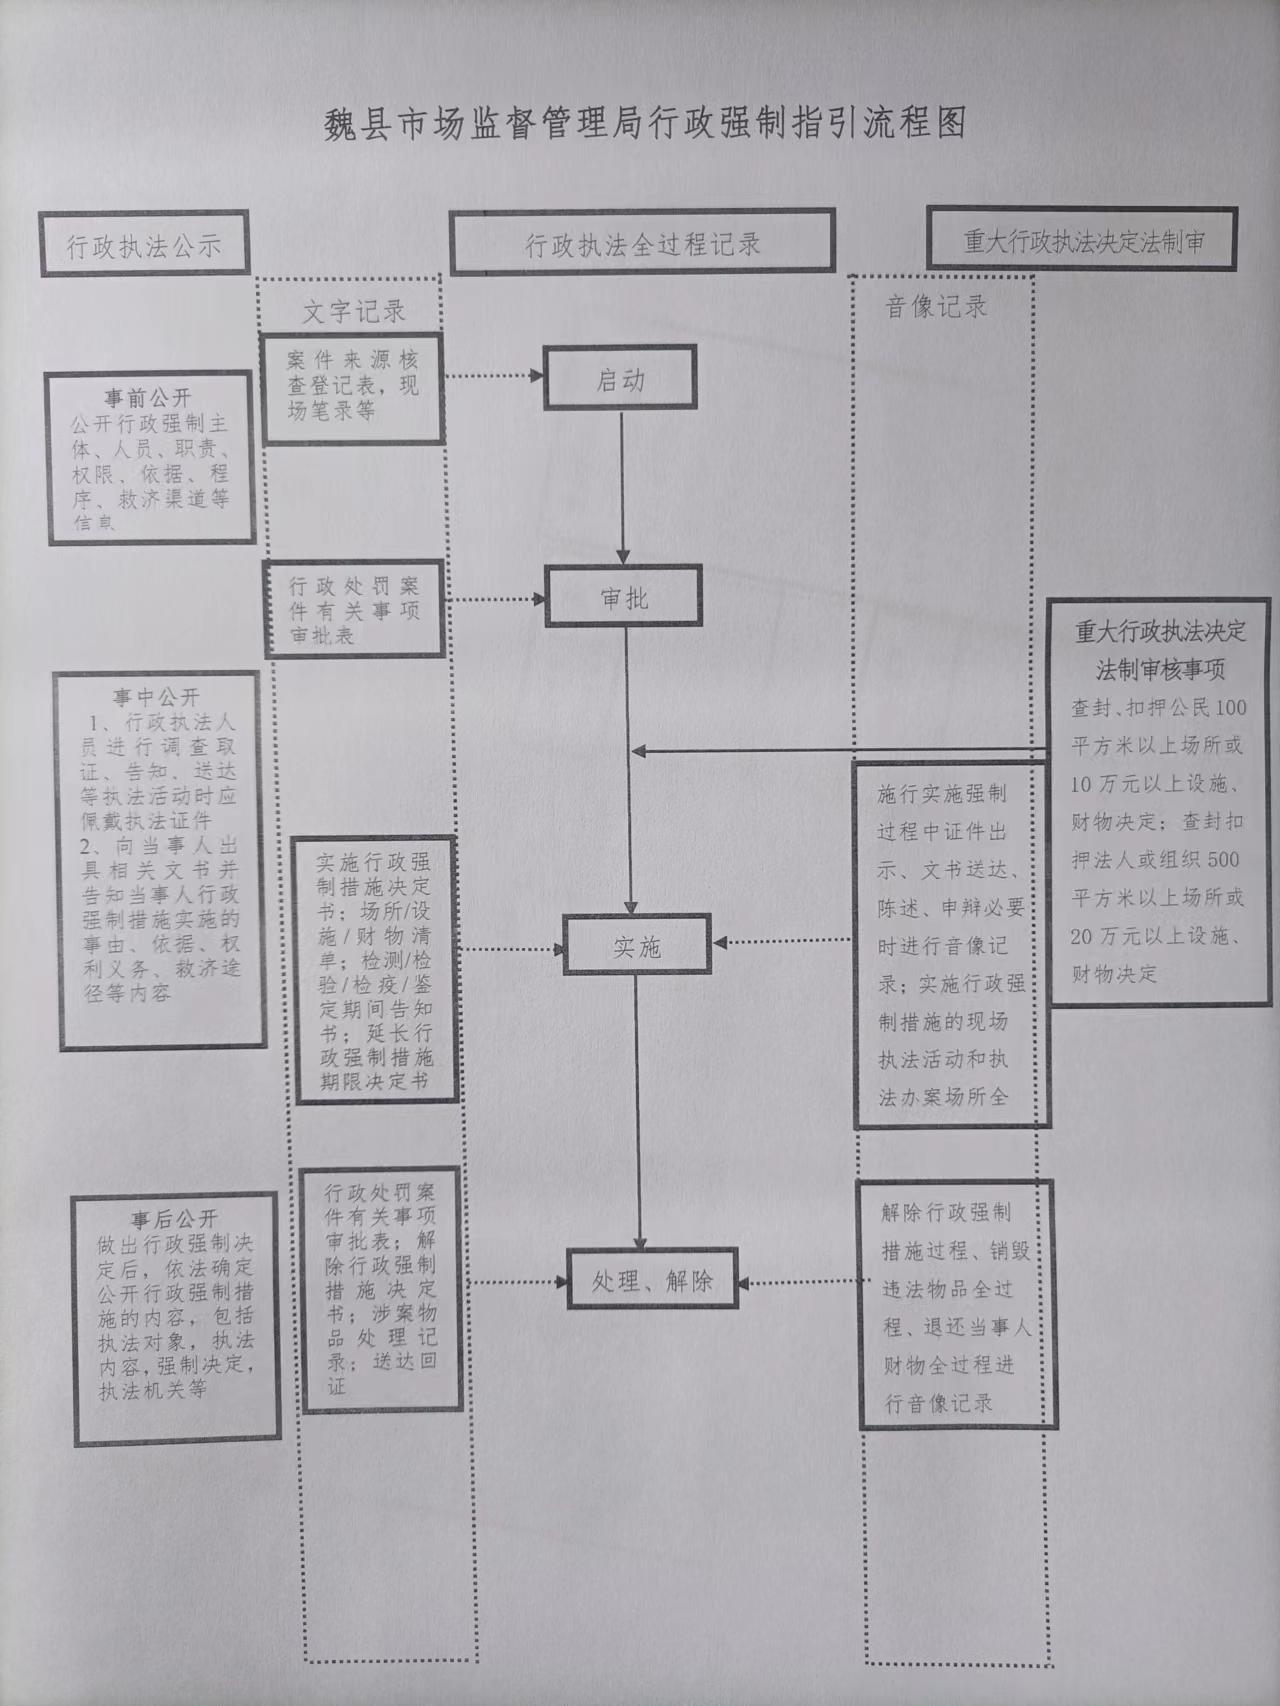 魏县市场监督管理局行政强制指引流程图
行政执法公示
行政执法全过程记录
重大行政执法决定法制审
文字记录
音像记录
案件来源核
查登记表，现
场笔录等
启动
事前公开
公开行政强制主
体、人员、职责、
权限、依据、程
序、救济渠道等
信息
行政处罚案
件有关事项
审批表
审批
重大行政执法决定
法制审核事项
查封、扣押公民100
平方米以上场所或
10万元以上设施、
财物决定；查封扣
押法人或组织500
平方米以上场所或
20万元以上设施、
财物决定
事中公开
1、行政执法人
员进行调查取
证、告知、送达
等执法活动时应
佩戴执法证件
2、向当事人出
具相关文书并
告知当事人行政
强制措施实施的
事由、依据、权
利义务、救济途
径等内容
实施行政强
制措施决定
书；场所/设
施/财物清
单；检测/检
验/检疫/鉴
定期间告知
书；延长行
政强制措施
期限决定书
实施
施行实施强制
过程中证件出
示、文书送达、
陈述、申辩必要
时进行音像记
录；实施行政强
制措施的现场
执法活动和执
法办案场所全
事后公开
做出行政强制决
定后，依法确定
公开行政强制措
施的内容，包括
执法对象，执法
内容，强制决定，
执法机关等
行政处罚案
件有关事项
审批表；解
除行政强制
措施决定
书；涉案物
品处理记
录；送达回
证
处理、解除
解除行政强制
措施过程、销毁
违法物品全过
程、退还当事人
财物全过程进
行音像记录